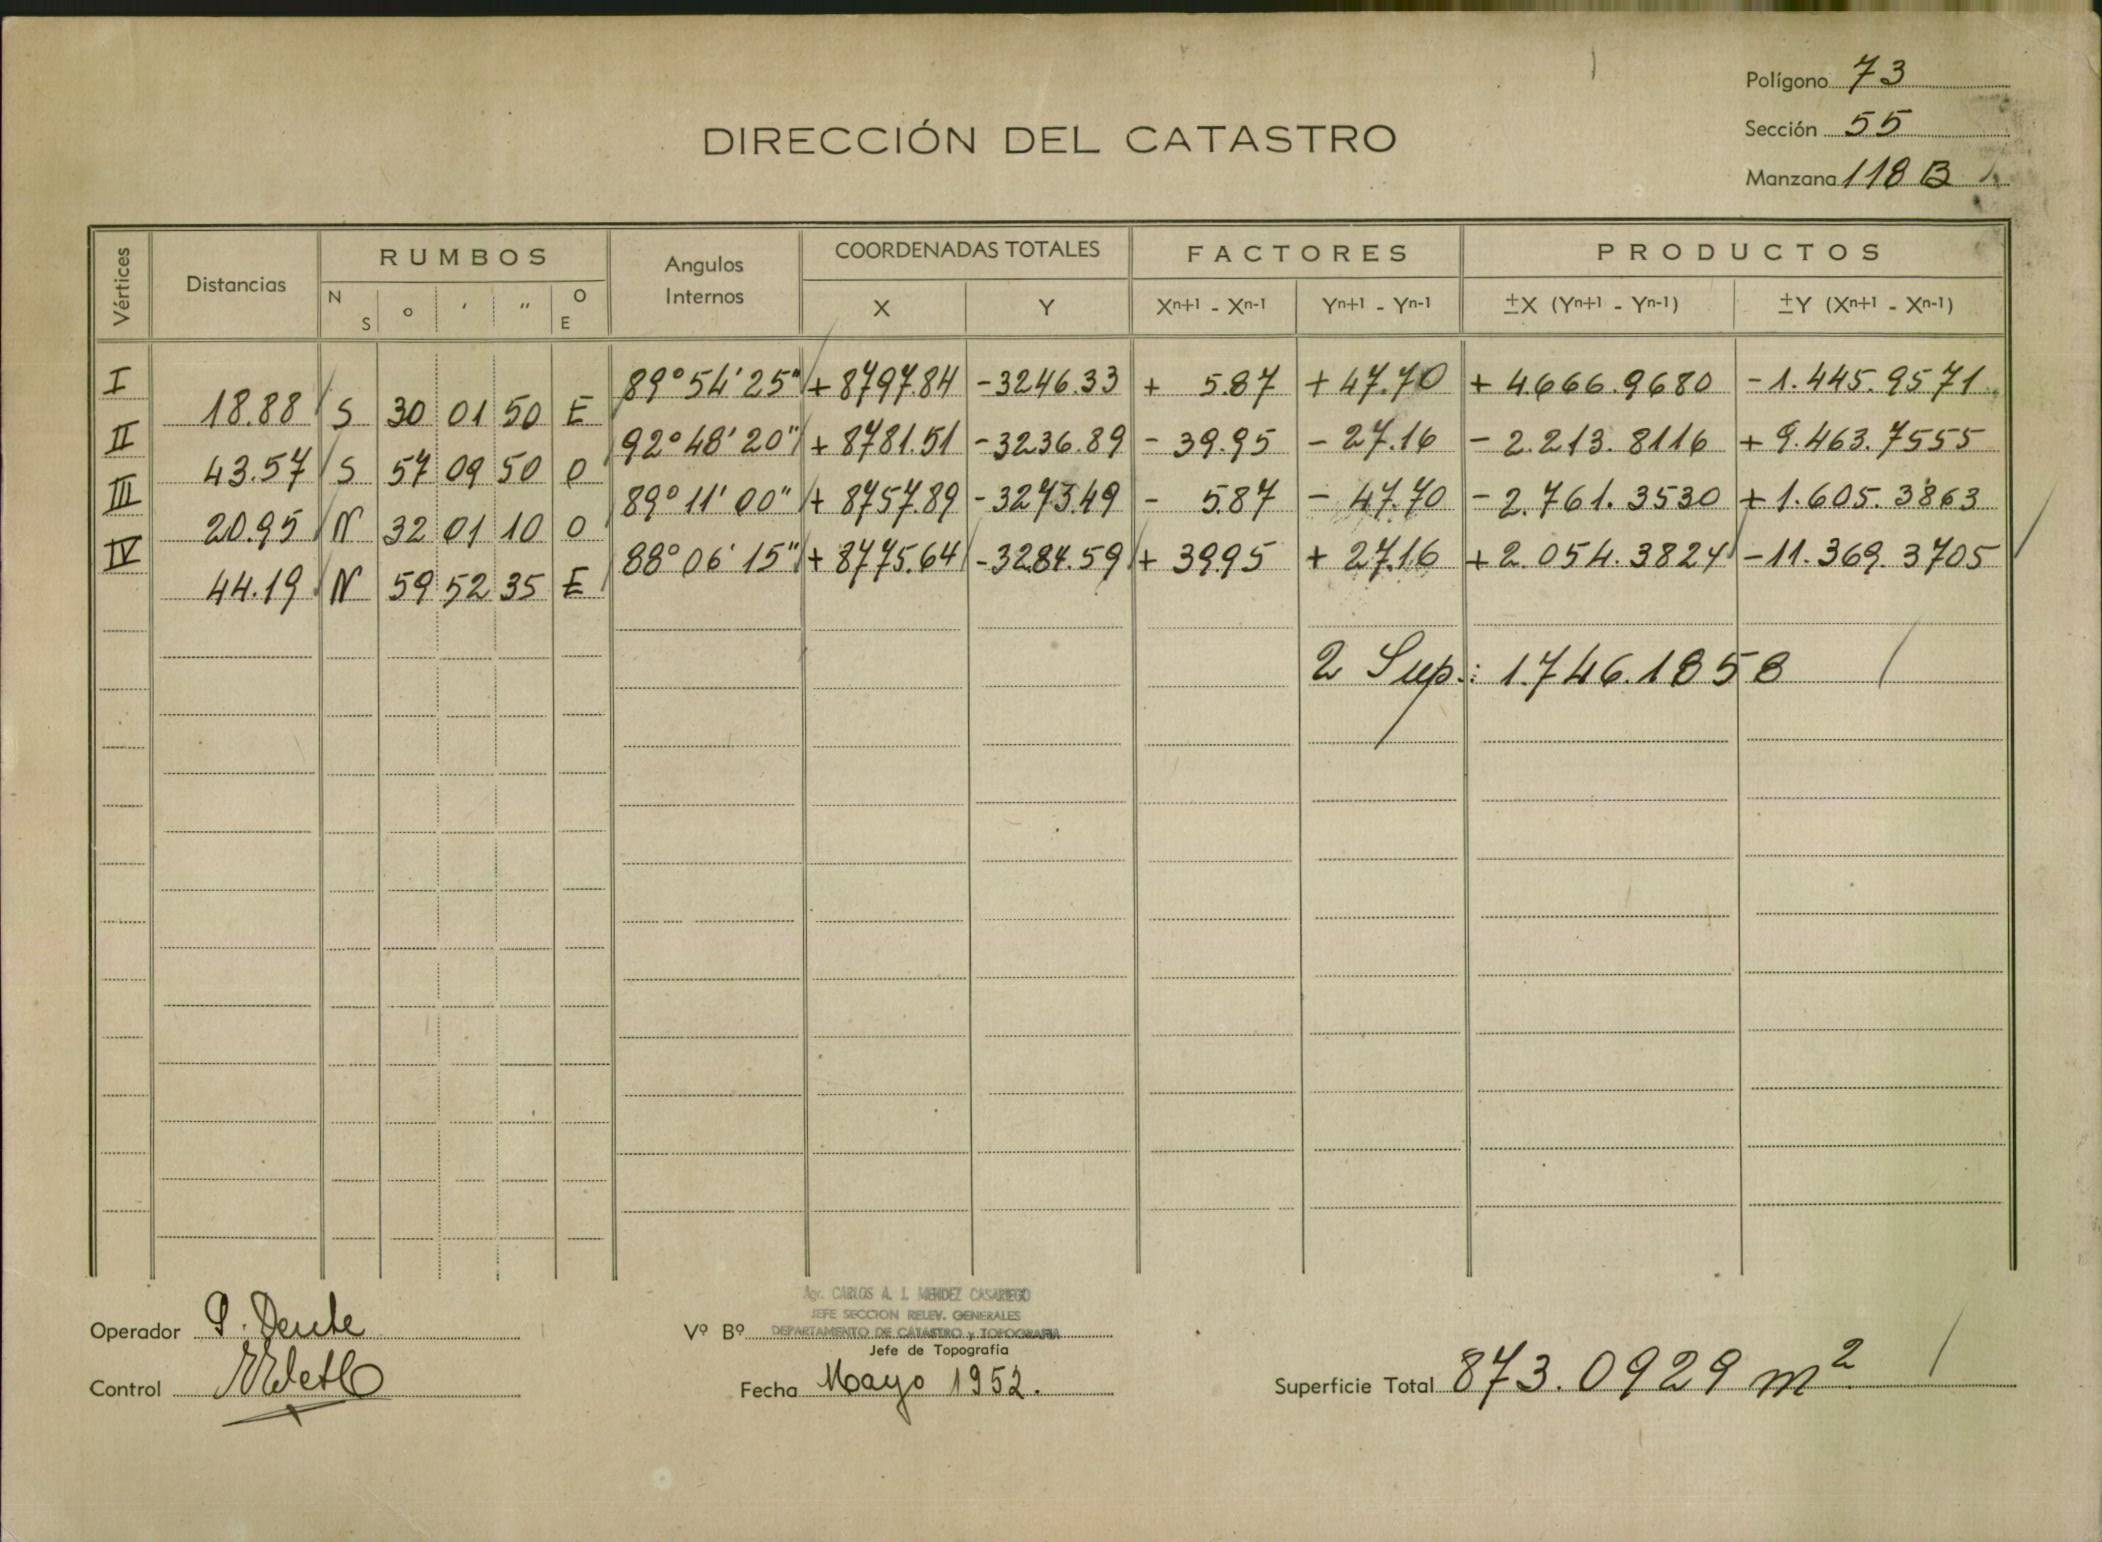 Polígono 73
Sección 55
Manzana 118 B
DIRECCIÓN DEL CATASTRO
Vértices Distancias RUMBOS Angulos Internos COORDENADAS TOTALES FACTORES PRODUCTOS
N S ° ' " O E X Y Xⁿ⁺¹ - Xⁿ⁻¹ Yⁿ⁺¹ - Yⁿ⁻¹ ±X (Yⁿ⁺¹ - Yⁿ⁻¹) ±Y (Xⁿ⁺¹ - Xⁿ⁻¹)
I 89° 54' 25" + 8797.84 - 3246.33 + 5.87 + 47.70 + 4.666.9680 - 1.445.9571
18.88 S 30 01 50 E
II 92° 48' 20" + 8781.51 - 3236.89 - 39.95 - 27.16 - 2.213.8116 + 9.463.7555
43.57 S 57 09 50 O
III 89° 11' 00" + 8757.89 - 3273.49 - 5.87 - 47.70 - 2.761.3530 + 1.605.3863
20.95 N 32 01 10 O
IV 88° 06' 15" + 8775.64 - 3284.59 + 39.95 + 27.16 + 2.054.3824 - 11.369.3705
44.19 N 59 52 35 E
2 Sup.: 1.746.1858
Operador P. Dente
Control
Vº Bº
Agr. CARLOS A. I. MENDEZ CASARIEGO
JEFE SECCION RELEV. GENERALES
DEPARTAMENTO DE CATASTRO y TOPOGRAFIA
Jefe de Topografía
Fecha Mayo 1952.
Superficie Total 873.0929 m²